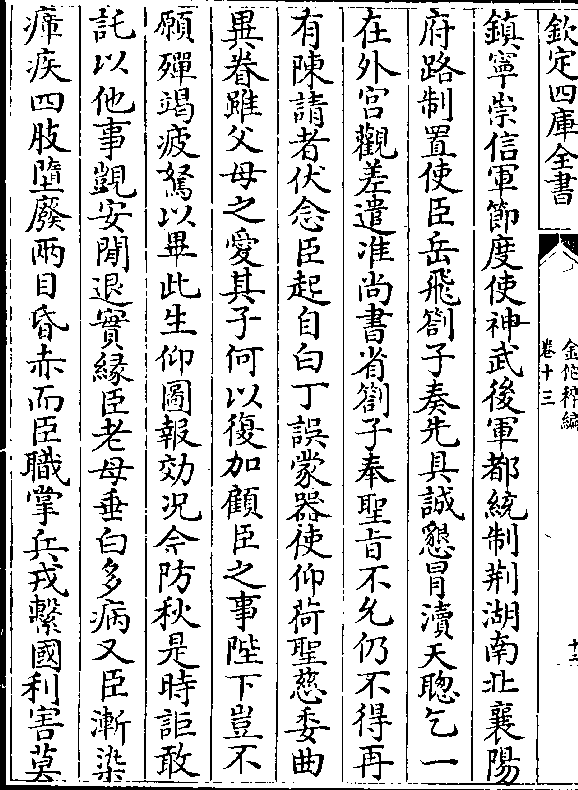 欽定四庫全書
金佗稡編
卷十三
十二
鎮寧崇信軍節度使神武後軍都統制荆湖南北襄陽
府路制置使臣岳飛劄子奏先具誠懇冒瀆天聰乞一
在外宫觀差遣准尚書省劄子奉聖旨不允仍不得再
有陳請者伏念臣起自白丁誤蒙器使仰荷聖慈委曲
異眷雖父母之愛其子何以復加顧臣之事陛下豈不
願殫竭疲駑以畢此生仰圖報効况今防秋是時詎敢
託以他事覬安閒退實縁臣老母垂白多病又臣漸染
瘴疾四肢墮廢兩目昏赤而臣職掌兵戎繫國利害莫